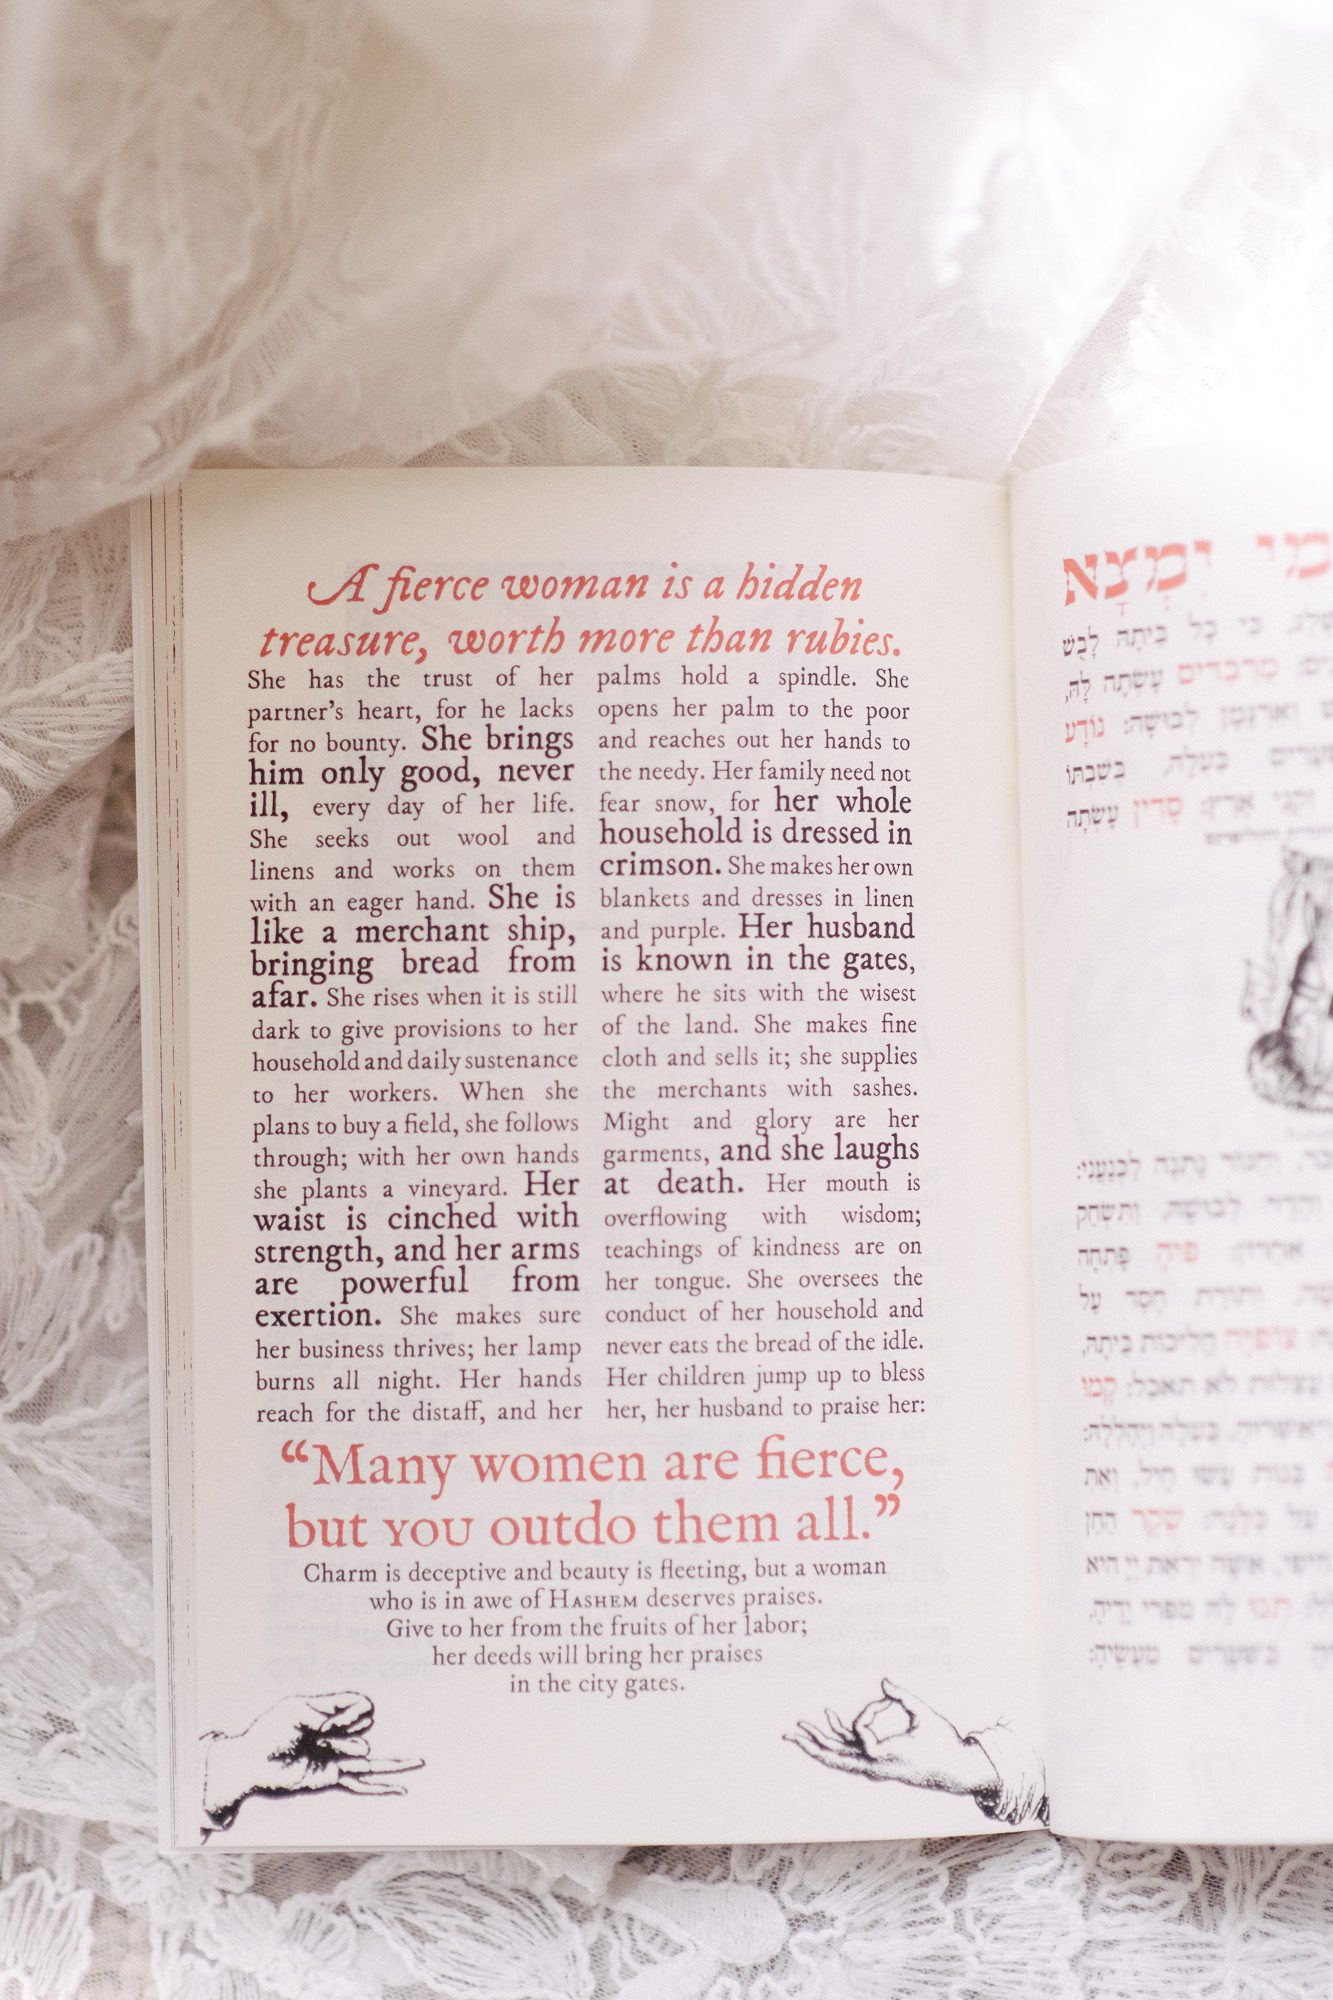 A fierce woman is a hidden
treasure, worth more than rubies.
She has the trust of her
partner's heart, for he lacks
for no bounty. She brings
him only good, never
ill, every day of her life.
She seeks out wool and
linens and works on them
with an eager hand. She is
like a merchant ship,
bringing bread from
afar. She rises when it is still
dark to give provisions to her
household and daily sustenance
to her workers. When she
plans to buy a field, she follows
through; with her own hands
she plants a vineyard. Her
waist is cinched with
strength, and her arms
are powerful from
exertion. She makes sure
her business thrives; her lamp
burns all night. Her hands
reach for the distaff, and her
palms hold a spindle. She
opens her palm to the poor
and reaches out her hands to
the needy. Her family need not
fear snow, for her whole
household is dressed in
crimson. She makes her own
blankets and dresses in linen
and purple. Her husband
is known in the gates,
where he sits with the wisest
of the land. She makes fine
cloth and sells it; she supplies
the merchants with sashes.
Might and glory are her
garments, and she laughs
at death. Her mouth is
overflowing with wisdom;
teachings of kindness are on
her tongue. She oversees the
conduct of her household and
never eats the bread of the idle.
Her children jump up to bless
her, her husband to praise her:
“Many women are fierce,
but YOU outdo them all.”
Charm is deceptive and beauty is fleeting, but a woman
who is in awe of HASHEM deserves praises.
Give to her from the fruits of her labor;
her deeds will bring her praises
in the city gates.
מי יִמְצָא
כִּי כָל בֵּיתָהּ לָבֻשׁ
מַרְבַדִּים עָשְׂתָה לָּהּ,
וְאַרְגָּמָן לְבוּשָׁהּ: נוֹדָע
בַּעְלָהּ, בְּשִׁבְתּוֹ
זִקְנֵי אָרֶץ: סָדִין עָשְׂתָה
וַחֲגוֹר נָתְנָה לַכְּנַעֲנִי:
וְהָדָר לְבוּשָׁהּ, וַתִּשְׂחַק
אַחֲרוֹן: פִּיהָ פָּתְחָה
וְתוֹרַת חֶסֶד עַל
צוֹפִיָּה הֲלִיכוֹת בֵּיתָהּ,
עַצְלוּת לֹא תֹאכֵל: קָמוּ
וַיְאַשְּׁרוּהָ, בַּעְלָהּ וַיְהַלְלָהּ:
בָּנוֹת עָשׂוּ חָיִל, וְאַתְּ
עַל כֻּלָּנָה: שֶׁקֶר הַחֵן
אִשָּׁה יִרְאַת יְיָ הִיא
תְּנוּ לָהּ מִפְּרִי יָדֶיהָ,
בַשְּׁעָרִים מַעֲשֶׂיהָ: